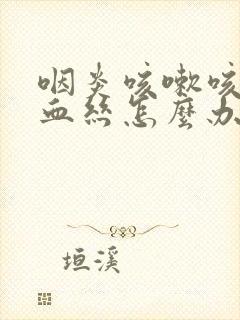 咽炎咳嗽咳
血丝怎麽办
垣溪